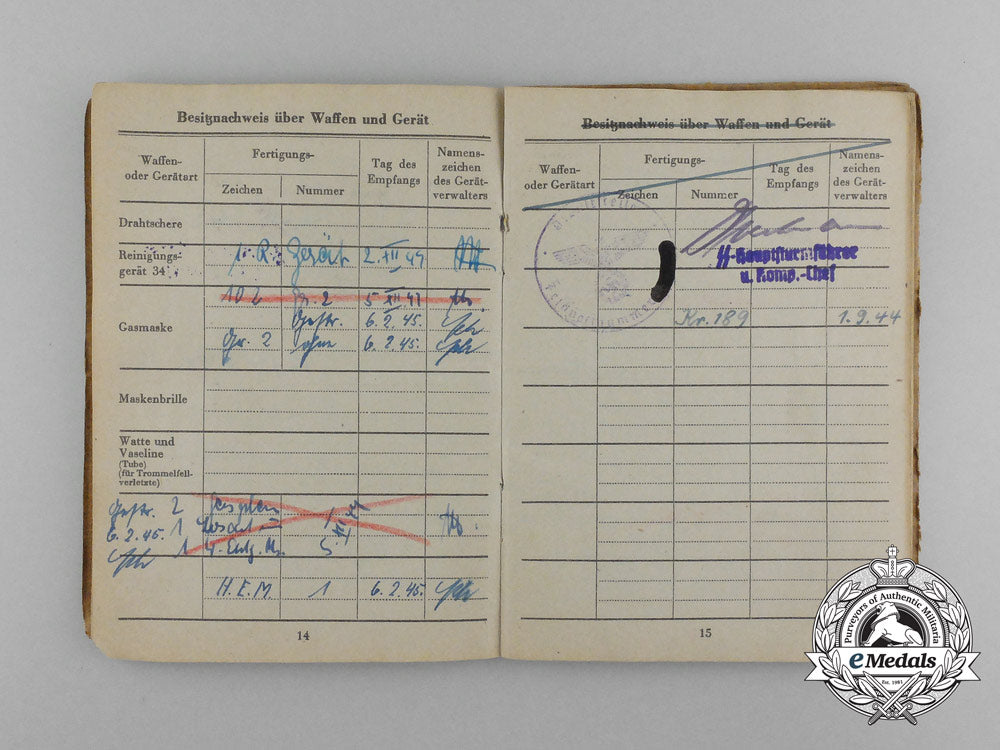 Besitznachweis über Waffen und Gerät
Waffen-
oder Gerätart
Fertigungs-
Zeichen
Nummer
Tag des
Empfangs
Namens-
zeichen
des Gerät-
verwalters
Drahtschere
Reinigungs-
gerät 34
1 R. Gerät 2. XII 44
Gasmaske
Gr. 2
Gestr. 6. 2. 45.
Gr. 2 ohne 6. 2. 45.
Maskenbrille
Watte und
Vaseline
(Tube)
(für Trommelfell-
verletzte)
Gestr. 2
6. 2. 45. 1
1
H. E. M. 1 6. 2. 45.
14
Besitznachweis über Waffen und Gerät
Waffen-
oder Gerätart
Fertigungs-
Zeichen
Nummer
Tag des
Empfangs
Namens-
zeichen
des Gerät-
verwalters
ᛋᛋ-Hauptsturmführer
u. Komp.-Chef
Kr. 189 1. 9. 44
15
Purveyors of Authentic Militaria
eMedals
Est. 1981